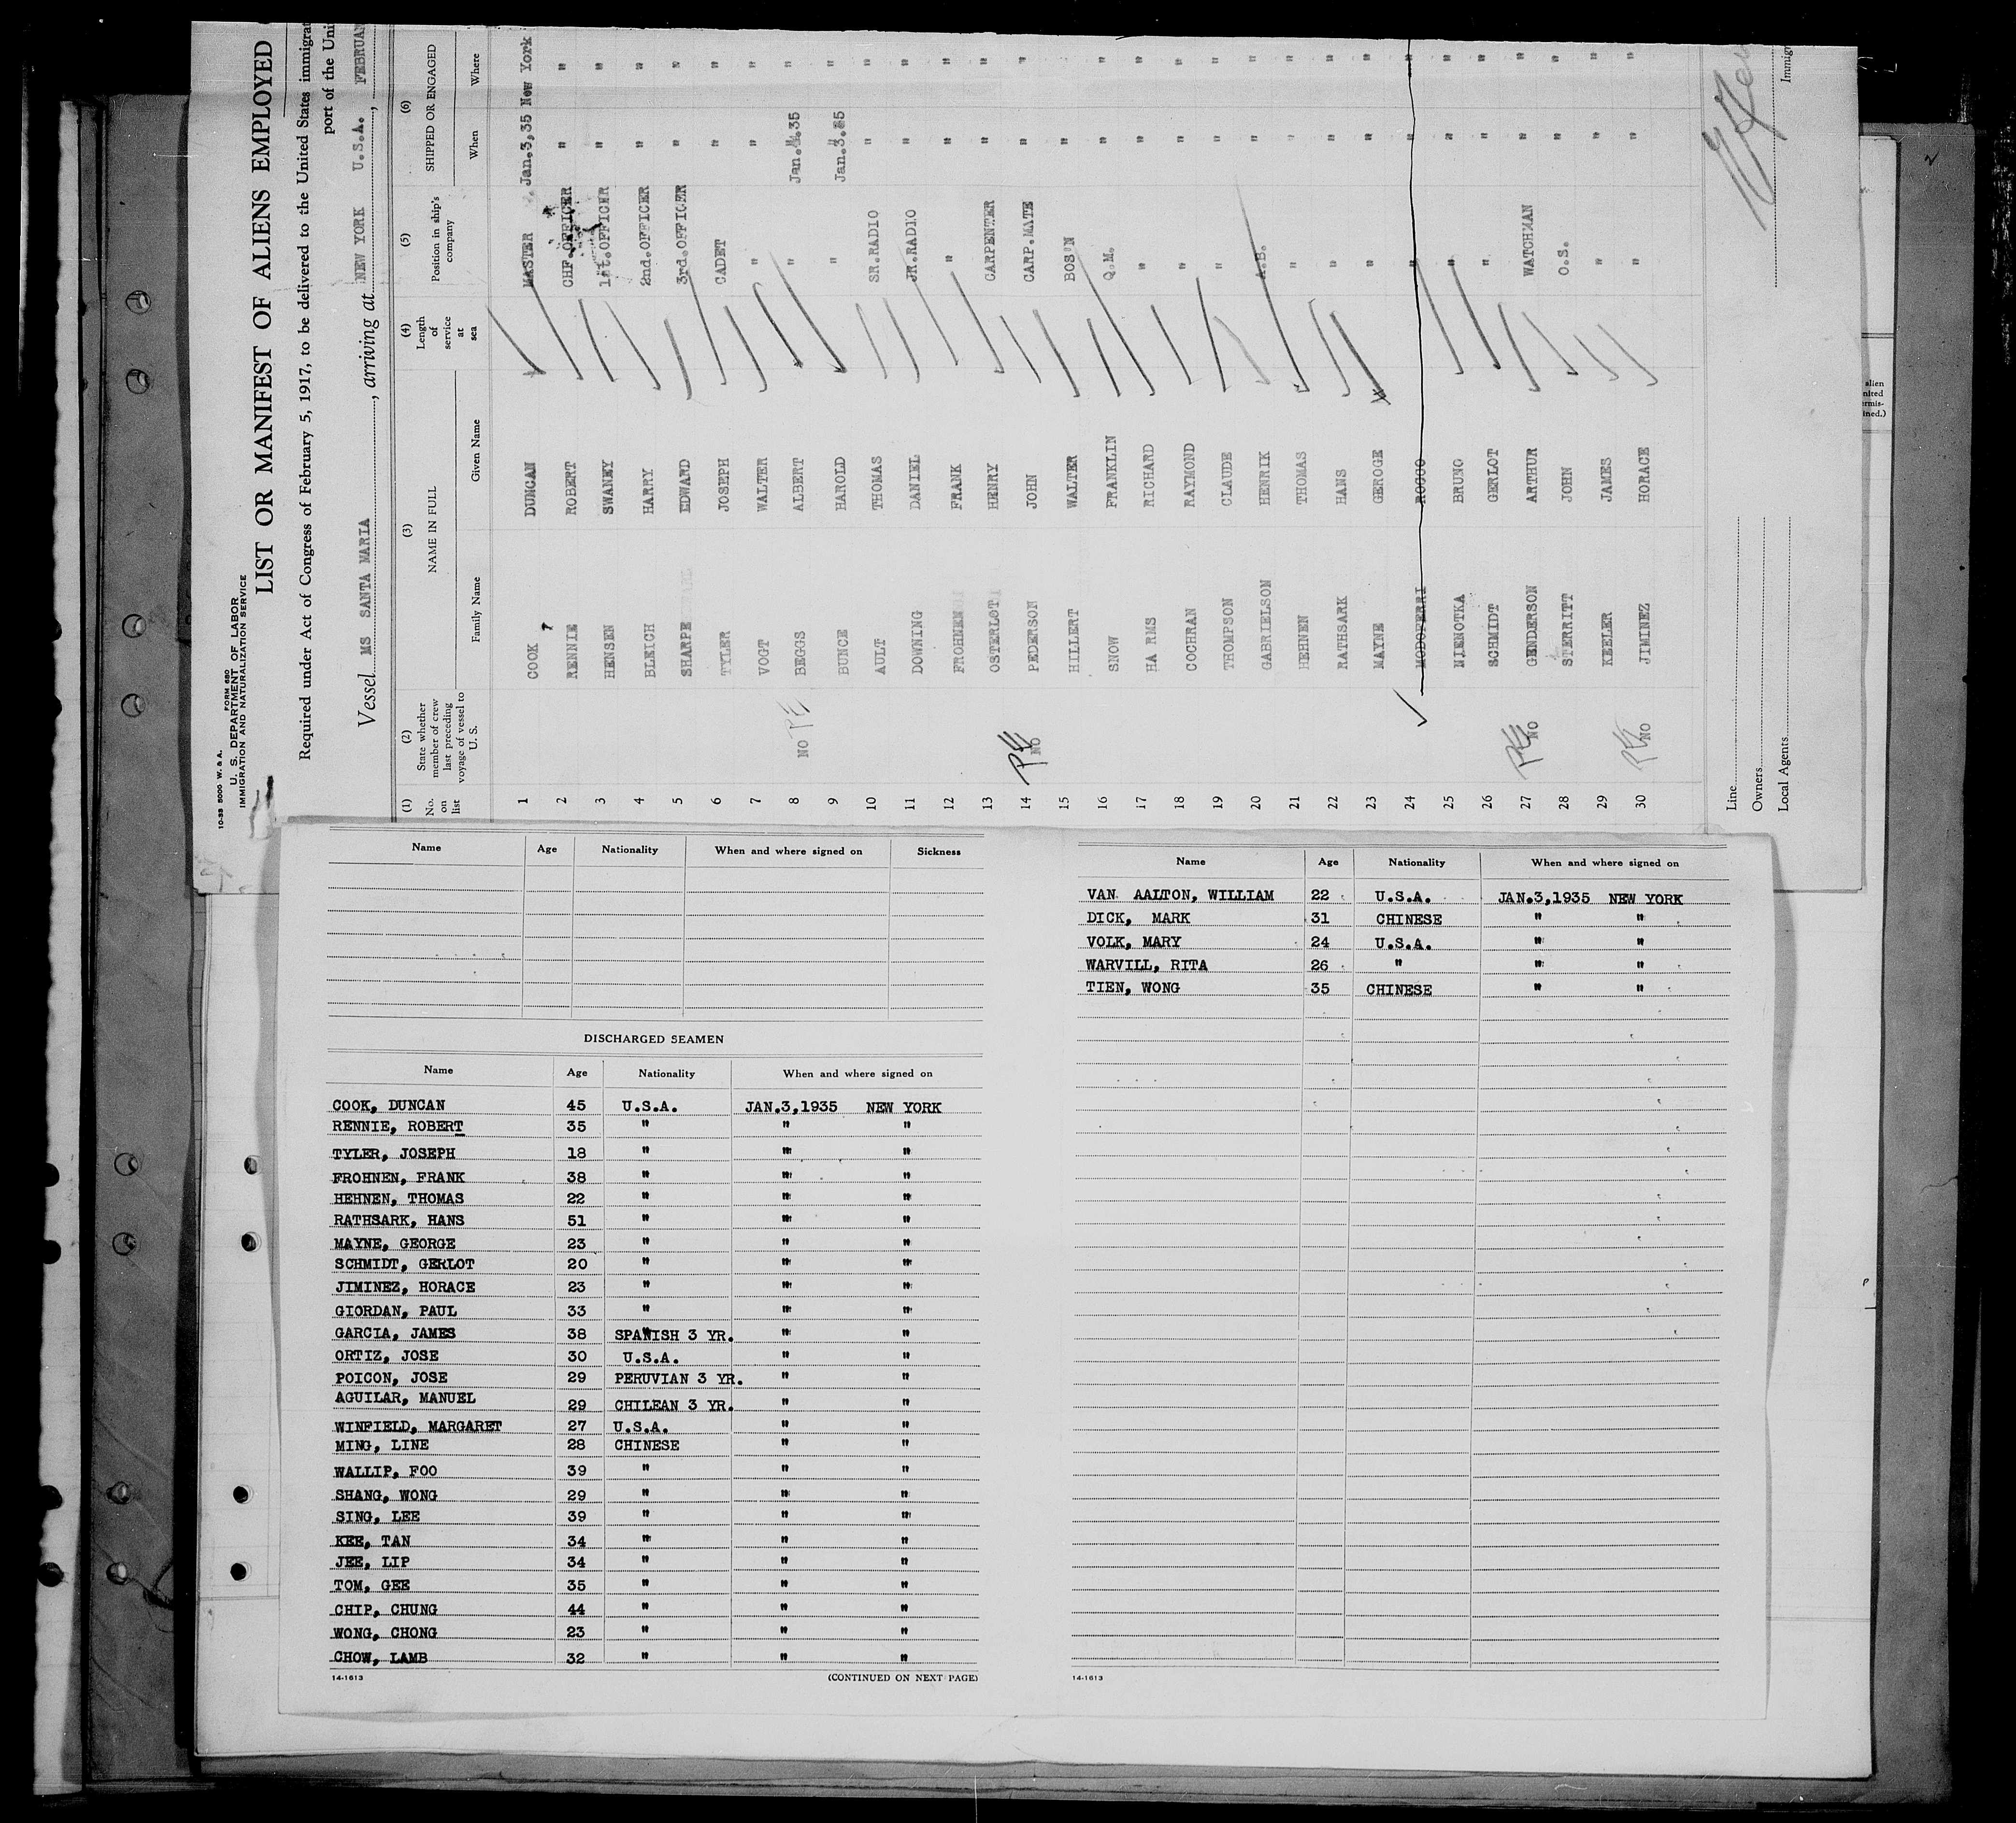 10-33 5000 W. & A.
FORM 680
U. S. DEPARTMENT OF LABOR
IMMIGRATION AND NATURALIZATION SERVICE
LIST OR MANIFEST OF ALIENS EMPLOYED
Required under Act of Congress of February 5, 1917, to be delivered to the United States immigrat
port of the Uni
Vessel MS SANTA MARIA, arriving at NEW YORK U.S.A. FEBRUAR
(1) No. on list (2) State whether member of crew last preceding voyage of vessel to U. S. (3) NAME IN FULL Family Name Given Name (4) Length of service at sea (5) Position in ship's company (6) SHIPPED OR ENGAGED When Where
1 COOK DUNCAN MASTER Jan.3,35 New York
2 RENNIE ROBERT CHF.OFFICER " "
3 HENSEN SWANEY 1st.OFFICER " "
4 BLEICH HARRY 2nd.OFFICER " "
5 SHARPE EDWARD 3rd.OFFICER " "
6 TYLER JOSEPH CADET " "
7 VOGT WALTER " " "
8 NO BEGGS ALBERT " "
9 BUNCE HAROLD " Jan.3.35 "
10 AULT THOMAS SR.RADIO " "
11 DOWNING DANIEL JR.RADIO " "
12 FROHNEN FRANK " " "
13 OSTERLOT HENRY CARPENTER " "
14 NO PEDERSON JOHN CARP.MATE "
15 HILLERT WALTER BOS'N "
16 SNOW FRANKLIN Q.M. " "
17 HARMS RICHARD " " "
18 COCHRAN RAYMOND " " "
19 THOMPSON CLAUDE " " "
20 GABRIELSON HENRIK A.B. " "
21 HEHNEN THOMAS " " "
22 RATHSARK HANS " " "
23 MAYNE GEROGE " " "
24 MODOFERRI ROCCO " " "
25 NIENOTKA BRUNO " " "
26 SCHMIDT GERLOT " " "
27 NO GENDERSON ARTHUR WATCHMAN " "
28 STERRITT JOHN O.S. " "
29 KEELER JAMES " " "
30 NO JIMINEZ HORACE " " "
Line
Owners
Local Agents
Immigr
alien
nited
ermis-
ined.)
Name Age Nationality When and where signed on Sickness
DISCHARGED SEAMEN
Name Age Nationality When and where signed on
COOK, DUNCAN 45 U.S.A. JAN.3,1935 NEW YORK
RENNIE, ROBERT 35 " " "
TYLER, JOSEPH 18 " " "
FROHNEN, FRANK 38 " " "
HEHNEN, THOMAS 22 " " "
RATHSARK, HANS 51 " " "
MAYNE, GEORGE 23 " " "
SCHMIDT, GERLOT 20 " " "
JIMINEZ, HORACE 23 " " "
GIORDAN, PAUL 33 " " "
GARCIA, JAMES 38 SPANISH 3 YR. " "
ORTIZ, JOSE 30 U.S.A. " "
POICON, JOSE 29 PERUVIAN 3 YR. " "
AGUILAR, MANUEL 29 CHILEAN 3 YR. " "
WINFIELD, MARGARET 27 U.S.A. " "
MING, LINE 28 CHINESE " "
WALLIP, FOO 39 " " "
SHANG, WONG 29 " " "
SING, LEE 39 " " "
KEE, TAN 34 " " "
JEE, LIP 34 " " "
TOM, GEE 35 " " "
CHIP, CHUNG 44 " " "
WONG, CHONG 23 " " "
CHOW, LAMB 32 " " "
14-1613 (CONTINUED ON NEXT PAGE)
Name Age Nationality When and where signed on
VAN AALTON, WILLIAM 22 U.S.A. JAN.3,1935 NEW YORK
DICK, MARK 31 CHINESE " "
VOLK, MARY 24 U.S.A. " "
WARVILL, RITA 26 " " "
TIEN, WONG 35 CHINESE " "
14-1613